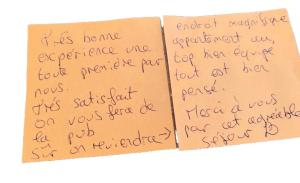 Très bonne
expérience une
toute première par
nous.
Très satisfait
on vous fera de
la pub
Sûr on reviendra →
endroit magnifique
appartement au
top bien équipé
tout est bien
pensé.
Merci à vous
par cet agréable
séjour